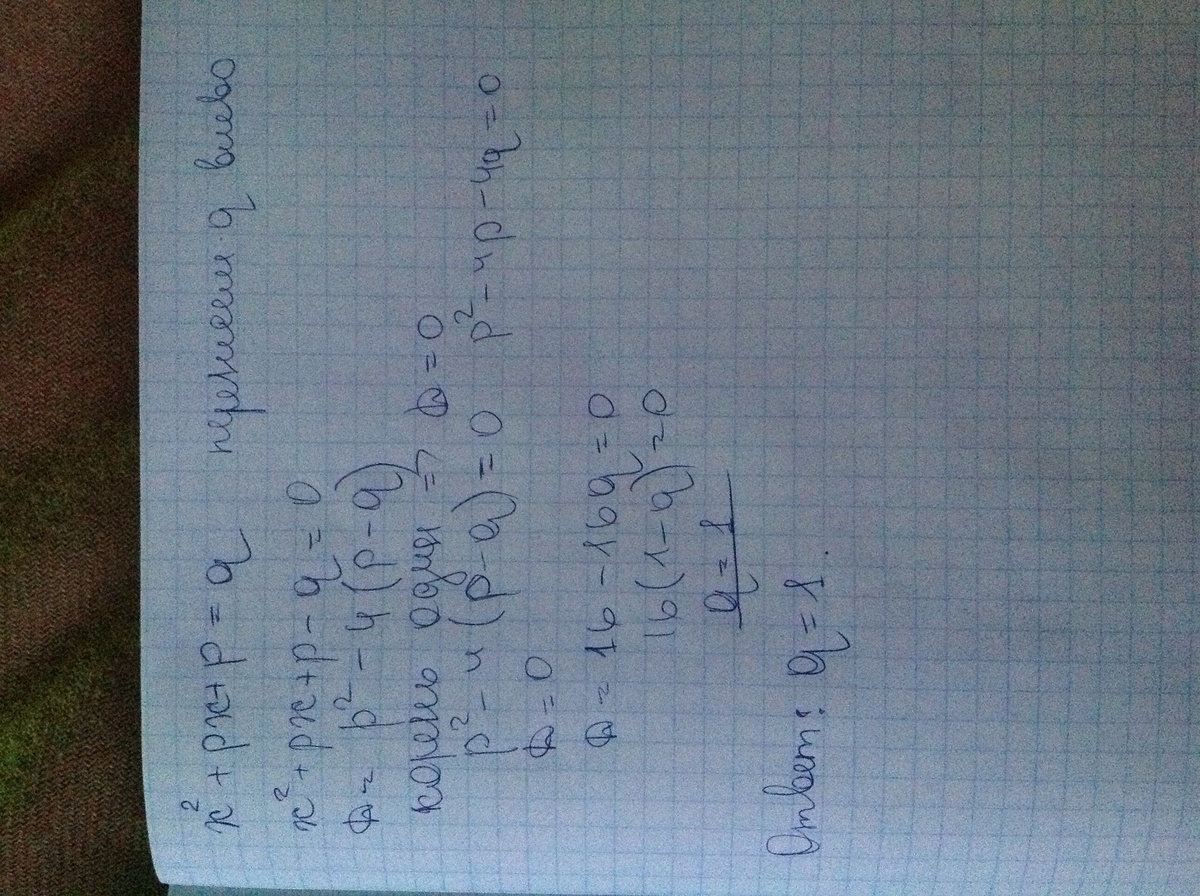 x² + px + p = q перенесем q влево
x² + px + p - q = 0
D = p² - 4(p - q)
корень один => D = 0
p² - 4(p - q) = 0 p² - 4p - 4q = 0
D = 0
D = 16 - 16q = 0
16(1 - q) = 0
q = 1
Ответ: q = 1.